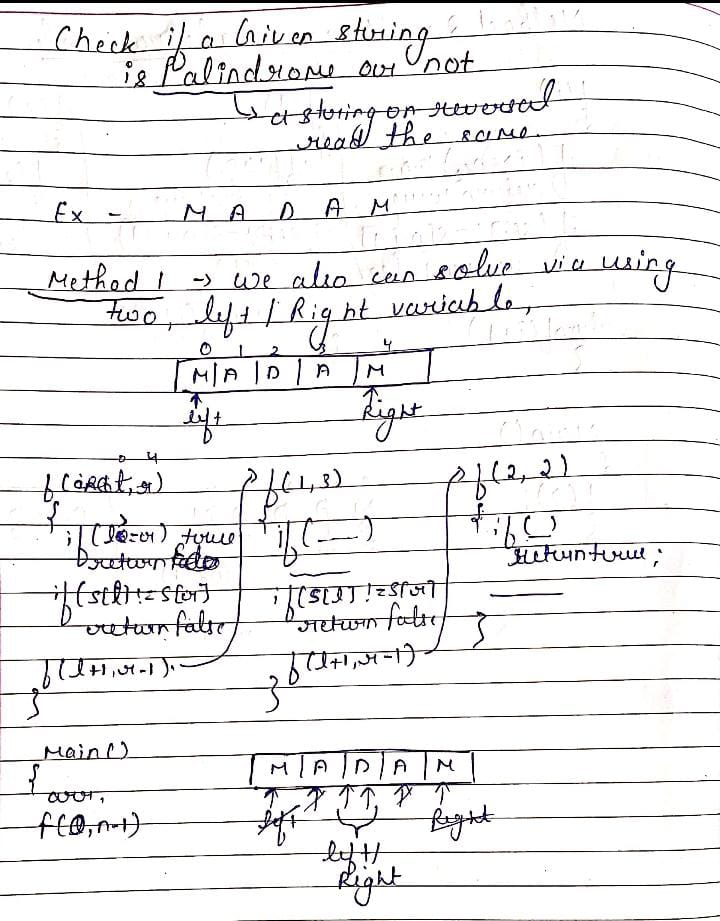 Check if a Given string
is Palindrome or not
↳ a string on reversal
read the same.
Ex - M A D A M
Method 1 → We also can solve via using
two, left / Right variable,
0 1 2 3 4
M | A | D | A | M
left Right
0 4
f(left, r)
{
if (l>=r) true
return
if (s[l] != s[r]
return false
f(l+1, r-1).
}
f(1, 3)
{
if (—)
if (s[l] != s[r]
return false
f(l+1, r-1)
}
f(2, 2)
{ if ( )
return true;
}
Main()
{
arr,
f(0, n-1)
M | A | D | A | M
left Right
left/
Right